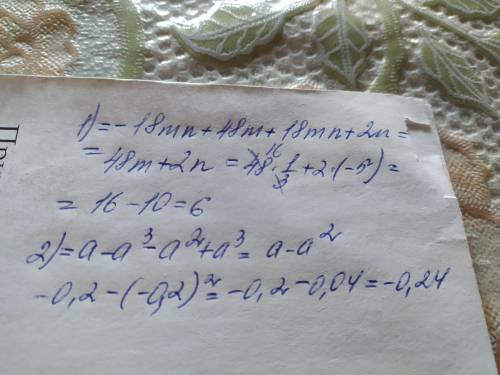 1) = -18mn + 48m + 18mn + 2n =
= 48m + 2n = 48^16 · 1/3 + 2 · (-5) =
= 16 - 10 = 6
2) = a - a³ - a² + a³ = a - a²
-0,2 - (-0,2)² = -0,2 - 0,04 = -0,24